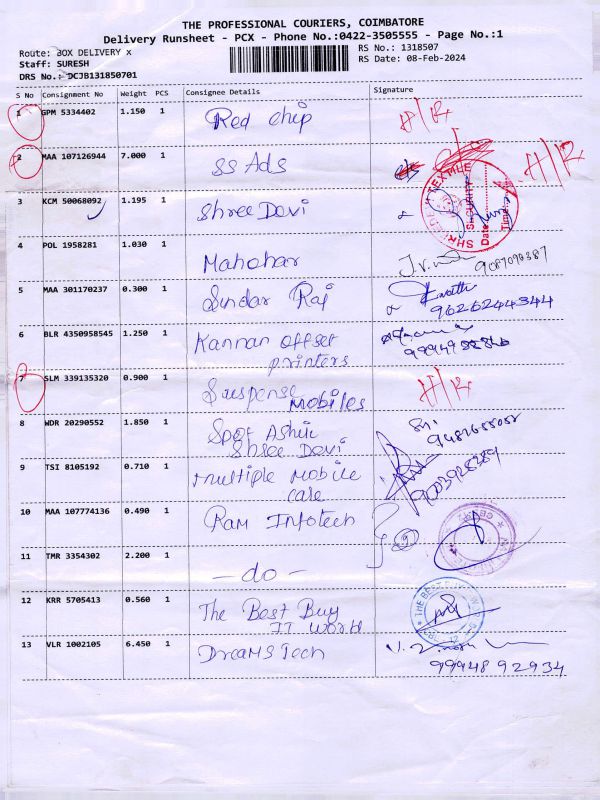 THE PROFESSIONAL COURIERS, COIMBATORE
Delivery Runsheet - PCX - Phone No.:0422-3505555 - Page No.:1
Route: BOX DELIVERY x RS No.: 1318507
Staff: SURESH RS Date: 08-Feb-2024
DRS No.: DCJB131850701
S No Consignment No Weight PCS Consignee Details Signature
1 GPM 5334402 1.150 1 Red chip H/R
2 MAA 107126944 7.000 1 SS Ads H/R
3 KCM 50068092 1.195 1 Shree Devi
SECURITY
Date
Time
4 POL 1958281 1.030 1 Mahohar
5 MAA 301170237 0.300 1 Sundar Raj 9626244344
6 BLR 4350958545 1.250 1 Kannan offset
printers
7 SLM 339135320 0.900 1 Suspense H/R
Mobiles
8 WDR 20290552 1.850 1 Spot Ashii
Shree Devi
9 TSI 8105192 0.710 1 Multiple Mobile 9003928389
care
10 MAA 107774136 0.490 1 Ram Infotech
11 TMR 3354302 2.200 1 - do -
12 KRR 5705413 0.560 1 The Best Buy
IT World
13 VLR 1002105 6.450 1 Dreams Tech
9994892934